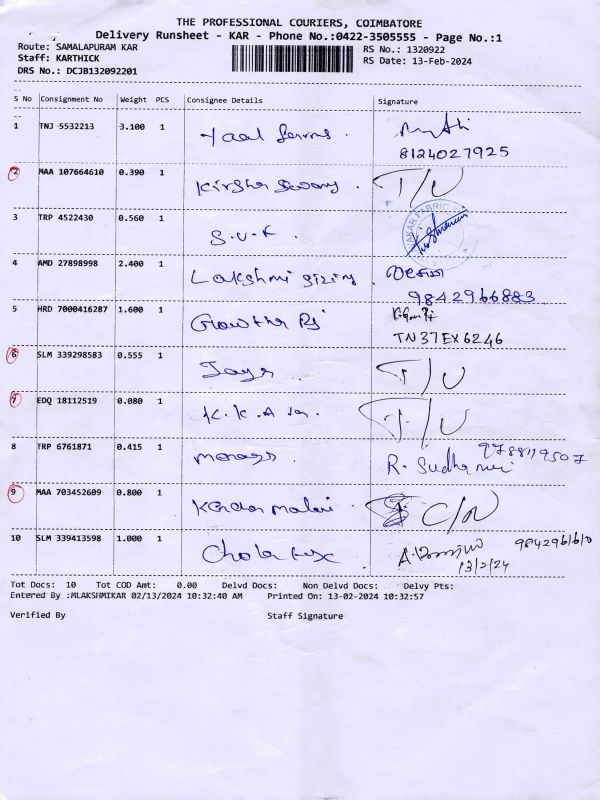 THE PROFESSIONAL COURIERS, COIMBATORE
Delivery Runsheet - KAR - Phone No.:0422-3505555 - Page No.:1
Route: SAMALAPURAM KAR
RS No.: 1320922
Staff: KARTHICK
RS Date: 13-Feb-2024
DRS No.: DCJB132092201
S No Consignment No Weight PCS Consignee Details Signature
1 TNJ 5532213 3.100 1
8124027925
2 MAA 107664610 0.390 1 T/U
3 TRP 4522430 0.560 1 S.U.F.
4 AMD 27898998 2.400 1 Lakshmi
9842966883
5 HRD 7000416287 1.600 1
TN37EX6246
6 SLM 339298583 0.555 1 T/U
7 EDQ 18112519 0.080 1 T/U
8 TRP 6761871 0.415 1 9788119507
R. Sudha
9 MAA 703452609 0.800 1
10 SLM 339413598 1.000 1 Chola
13/2/24
Tot Docs: 10 Tot COD Amt: 0.00 Delvd Docs: Non Delvd Docs: Delvy Pts:
Entered By :MLAKSHMIKAR 02/13/2024 10:32:40 AM Printed On: 13-02-2024 10:32:57
Verified By Staff Signature